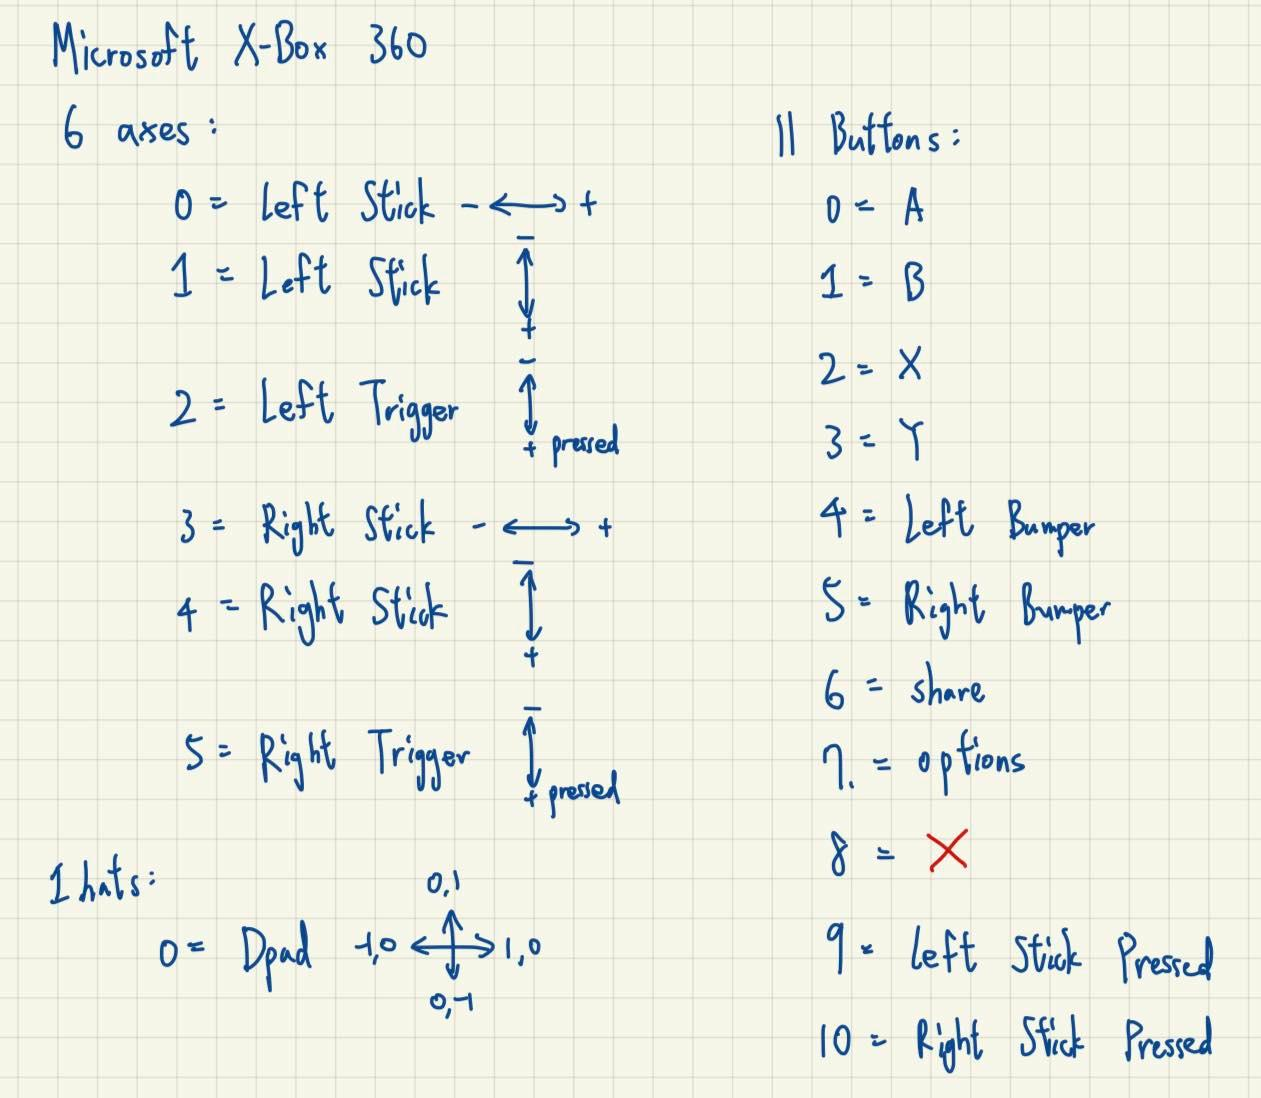 Microsoft X-Box 360
6 axes:
0 = Left Stick - ↔ +
-
1 = Left Stick ↕
+
-
2 = Left Trigger ↕
+ pressed
3 = Right Stick - ↔ +
-
4 = Right Stick ↕
+
-
5 = Right Trigger ↕
+ pressed
1 hats:
0,1
0 = Dpad -1,0 1,0
0,-1
11 Buttons:
0 = A
1 = B
2 = X
3 = Y
4 = Left Bumper
5 = Right Bumper
6 = share
7. = options
8 = X
9 = Left Stick Pressed
10 = Right Stick Pressed